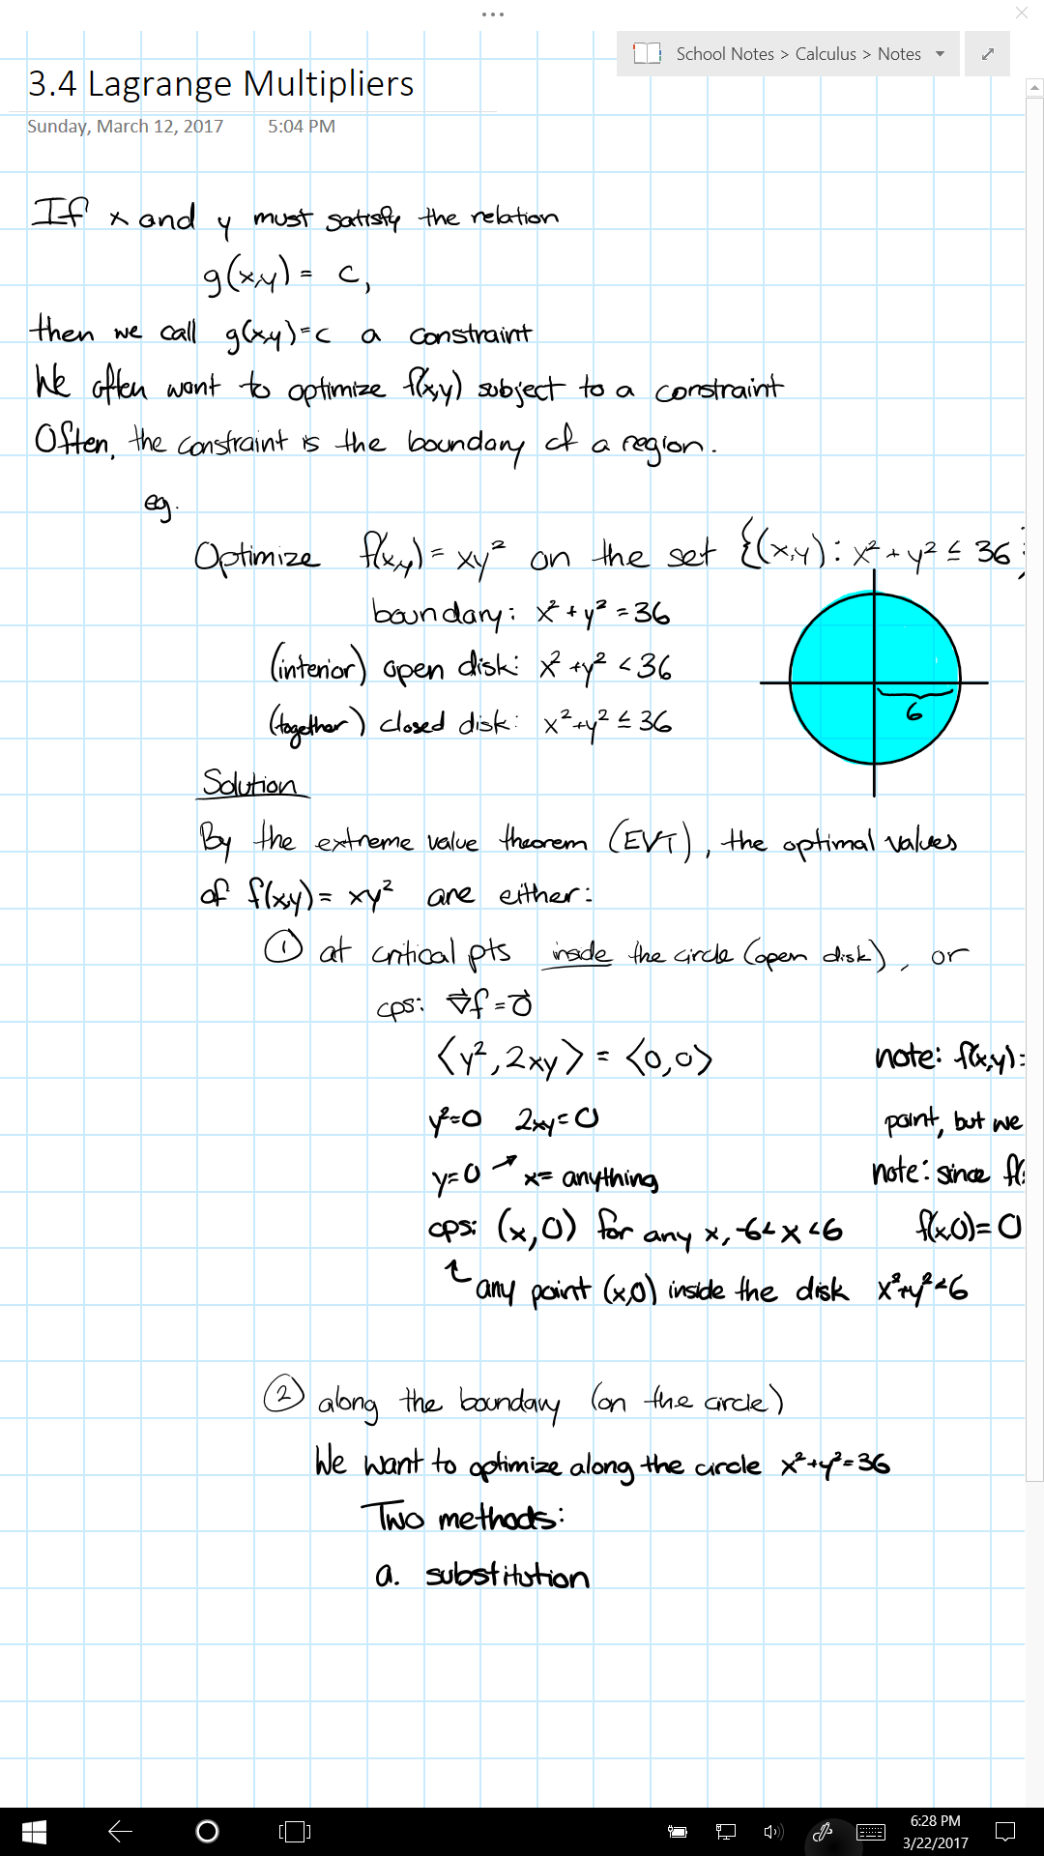 School Notes > Calculus > Notes
3.4 Lagrange Multipliers
Sunday, March 12, 2017 5:04 PM
If x and y must satisfy the relation
g(x,y) = c,
then we call g(x,y)=c a constraint
We often want to optimize f(x,y) subject to a constraint
Often, the constraint is the boundary of a region.
eg.
Optimize f(x,y) = xy² on the set {(x,y): x² + y² ≤ 36}
boundary: x² + y² = 36
(interior) open disk: x² + y² < 36
(together) closed disk: x² + y² ≤ 36
6
Solution
By the extreme value theorem (EVT), the optimal values
of f(x,y) = xy² are either:
① at critical pts inside the circle (open disk), or
cps: ∇⃗f = 0⃗
⟨y², 2xy⟩ = ⟨0,0⟩ note: f(x,y)=
y²=0 2xy=0 point, but we
y=0 ↗ x= anything note: since f(
cps: (x,0) for any x, -6<x<6 f(x,0)=0
↑ any point (x,0) inside the disk x²+y²<6
② along the boundary (on the circle)
We want to optimize along the circle x²+y²=36
Two methods:
a. substitution
6:28 PM
3/22/2017